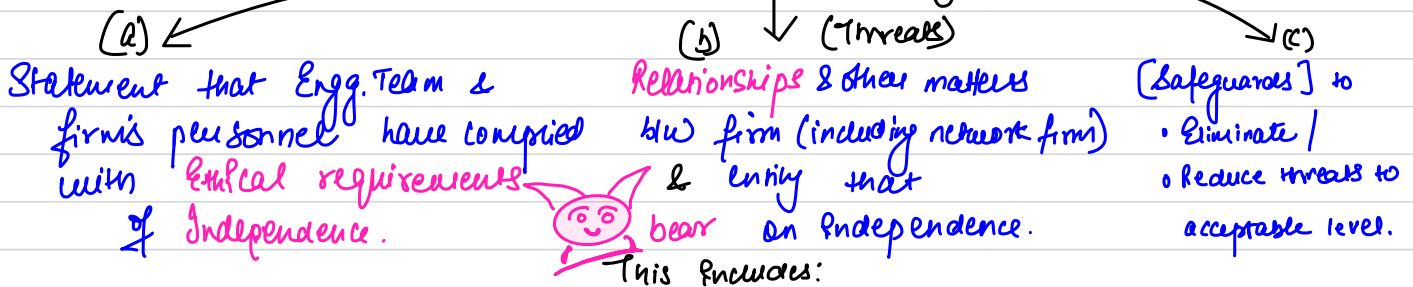 (a)
Statement that Engg. Team &
firm's personnel have complied
with Ethical requirements
of Independence.
(b) (Threats)
Relationships & other matters
b/w firm (including network firm)
& entity that
bear on Independence.
This includes:
(c)
[Safeguards] to
• Eliminate /
• Reduce threats to
acceptable level.